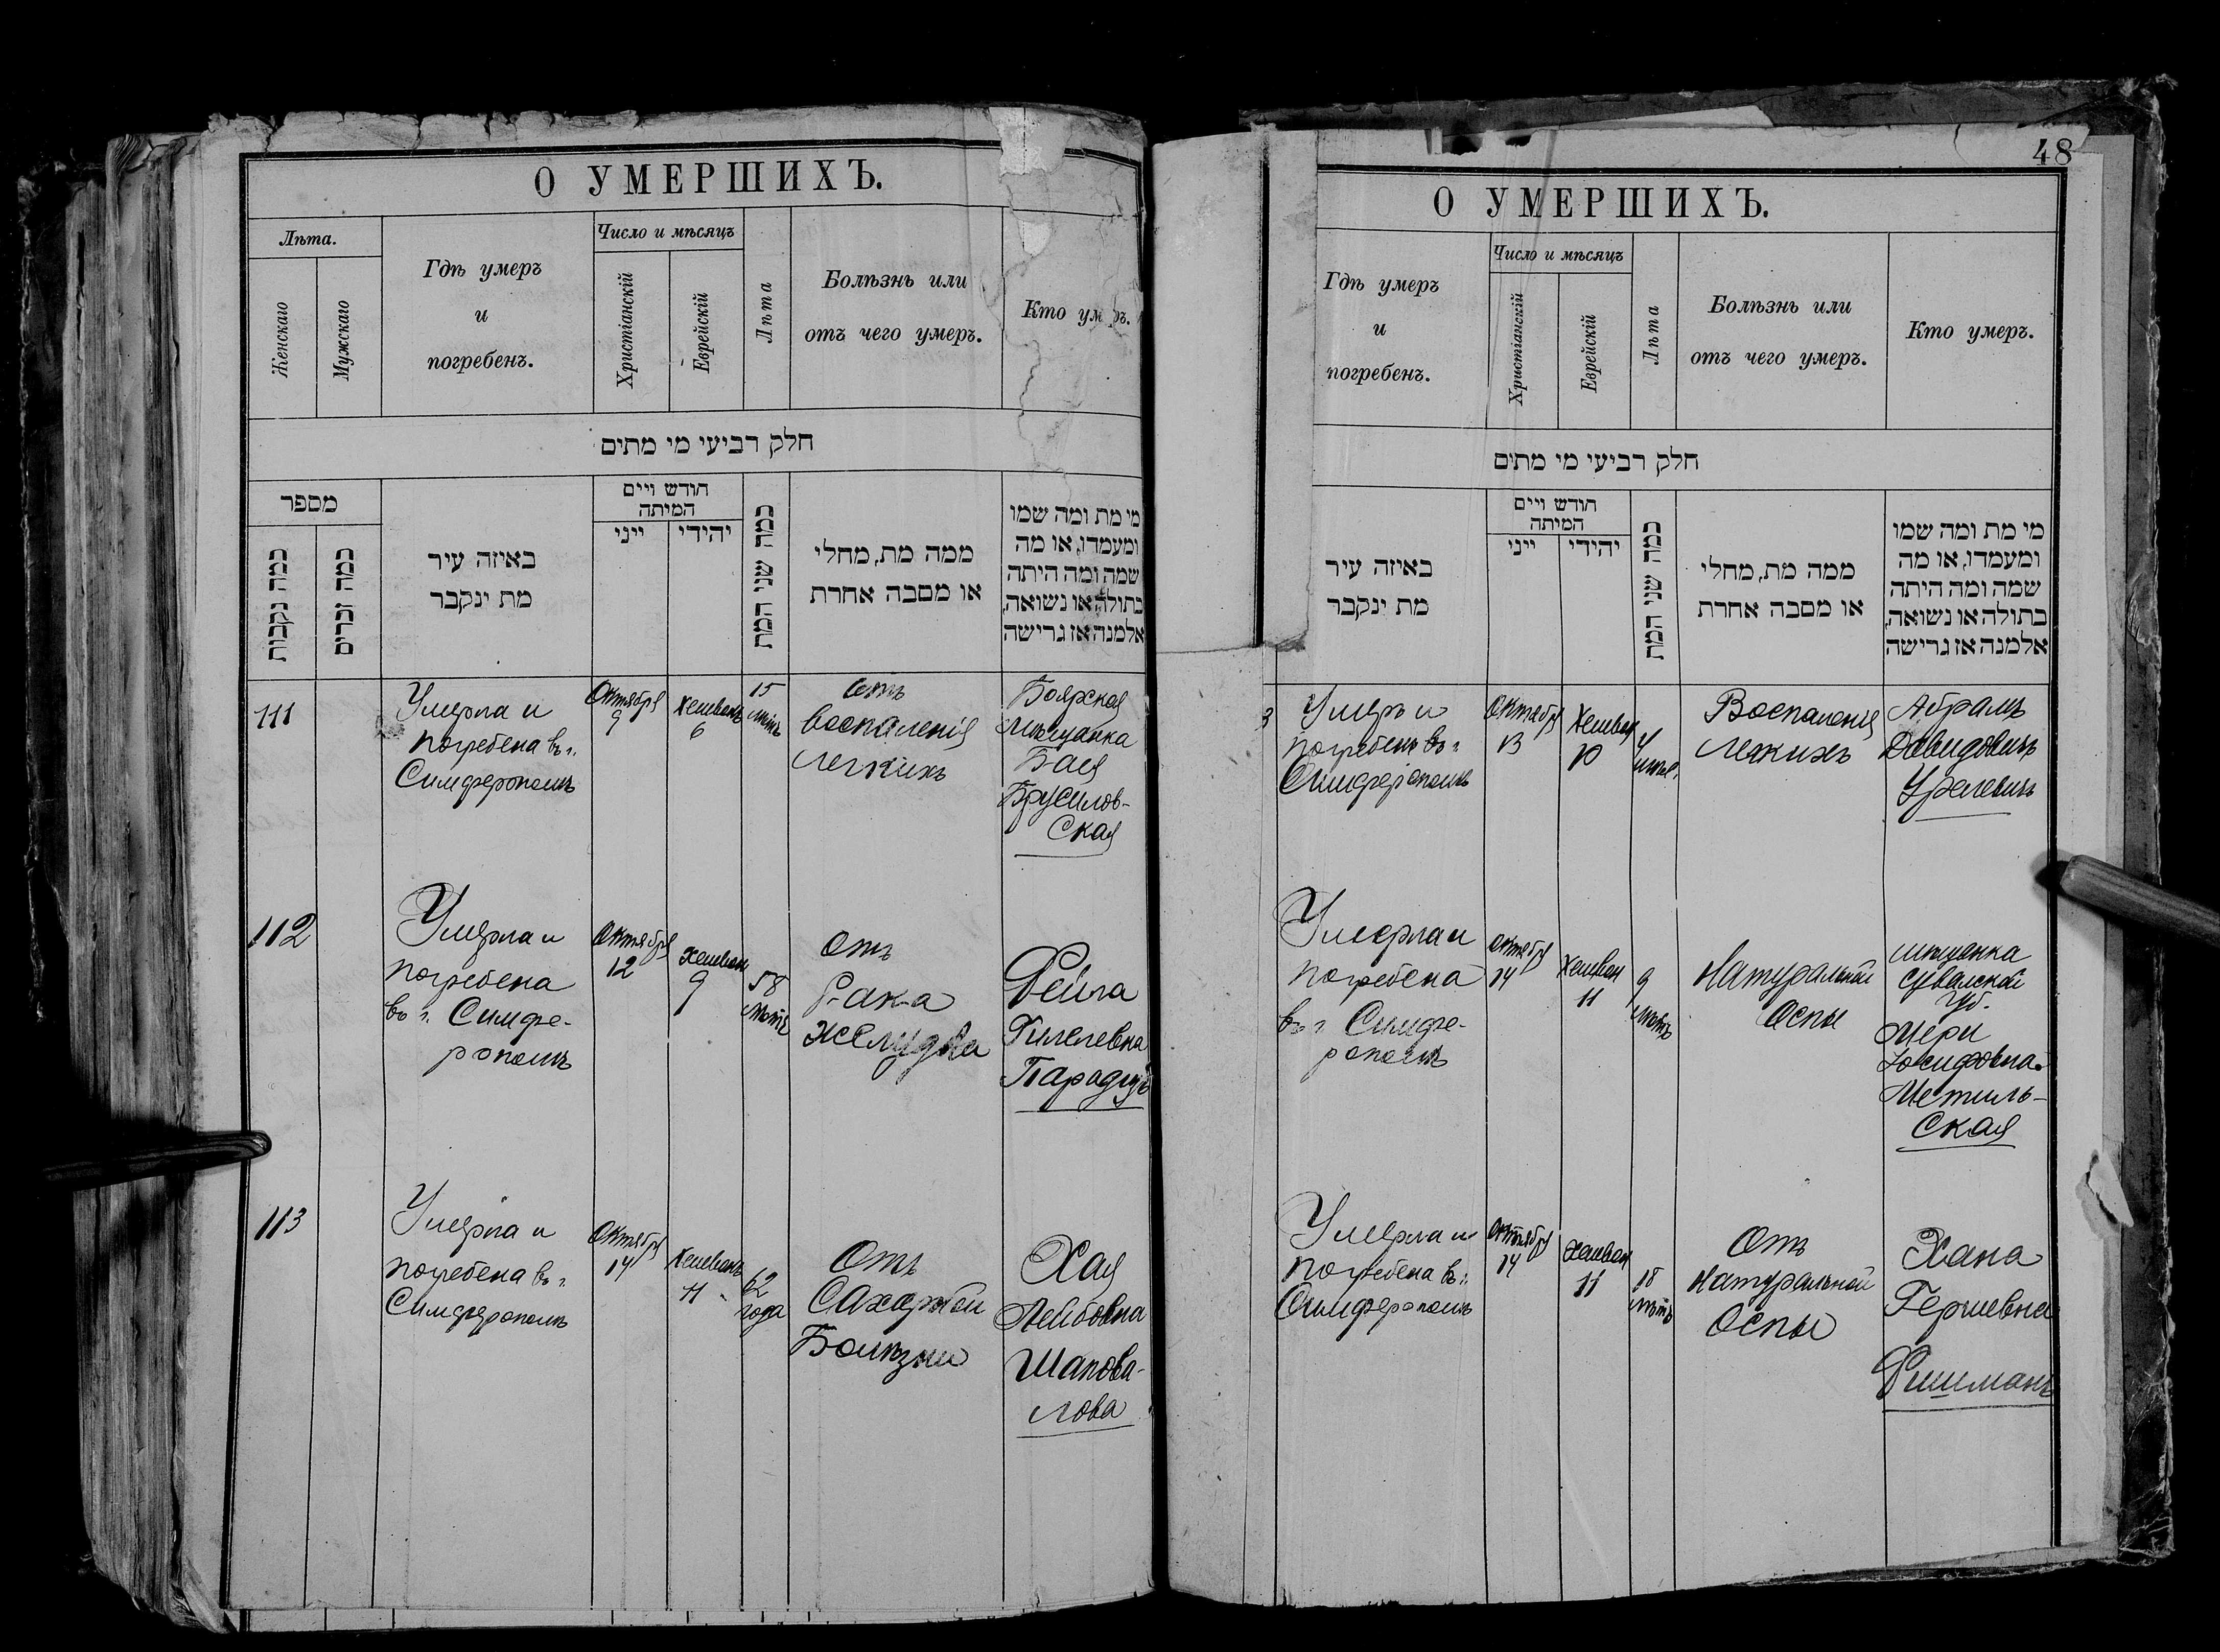 О УМЕРШИХЪ.
Лѣта.
Женскаго
Мужскаго
Гдѣ умеръ
и
погребенъ.
Число и мѣсяцъ
Христіанскій
Еврейскій
Лѣта
Болѣзнь или
отъ чего умеръ.
Кто умеръ.
חלק רביעי מי מתים
מספר
כמה נקבות
כמה זכרים
באיזה עיר
מת ינקבר
חודש ויים
המיתה
ייני
יהידי
כמה שני המת
ממה מת, מחלי
או מסבה אחרת
מי מת ומה שמו
ומעמדו, או מה
שמה ומה היתה
בתולה או נשואה,
אלמנה אז גרישה
111
Умерла и
погребена въ г.
Симферополѣ
Октября
9
Хешванъ
6
15
лѣтъ
отъ
воспаленія
легкихъ
Боярская
мѣщанка
Бася
Брусилов-
ская
112
Умерла и
погребена
въ г. Симфе-
рополѣ
Октября
12
Хешван
9
58
лѣтъ
отъ
Рака
желудка
Фейга
Гилелевна
Парадizъ
113
Умерла и
погребена въ г.
Симферополѣ
Октября
14
Хешванъ
11
62
года
Отъ
Сахарной
Болѣзни
Хая
Лейбовна
Шапова-
лова
48
О УМЕРШИХЪ.
Гдѣ умеръ
и
погребенъ.
Число и мѣсяцъ
Христіанскій
Еврейскій
Лѣта
Болѣзнь или
отъ чего умеръ.
Кто умеръ.
חלק רביעי מי מתים
באיזה עיר
מת ינקבר
חודש ויים
המיתה
ייני
יהידי
כמה שני המת
ממה מת, מחלי
או מסבה אחרת
מי מת ומה שמו
ומעמדו, או מה
שמה ומה היתה
בתולה או נשואה,
אלמנה אז גרישה
3
Умеръ и
погребенъ въ г.
Симферополѣ
Октября
13
Хешван
10
4
Воспаленія
легкихъ
Абрамъ
Давидовичъ
Умерла и
погребена
въ г. Симфе-
рополѣ
октября
14
Хешван
11
9
лѣтъ
Натуральной
Оспы
мѣщанка
Сувалской
губ.
Мери
Іосифовна
Метиль-
ская
Умерла и
погребена въ г.
Симферополѣ
Октября
14
Хешван
11
18
лѣтъ
Отъ
Натуральной
Оспы
Хана
Гершевна
Фишманъ